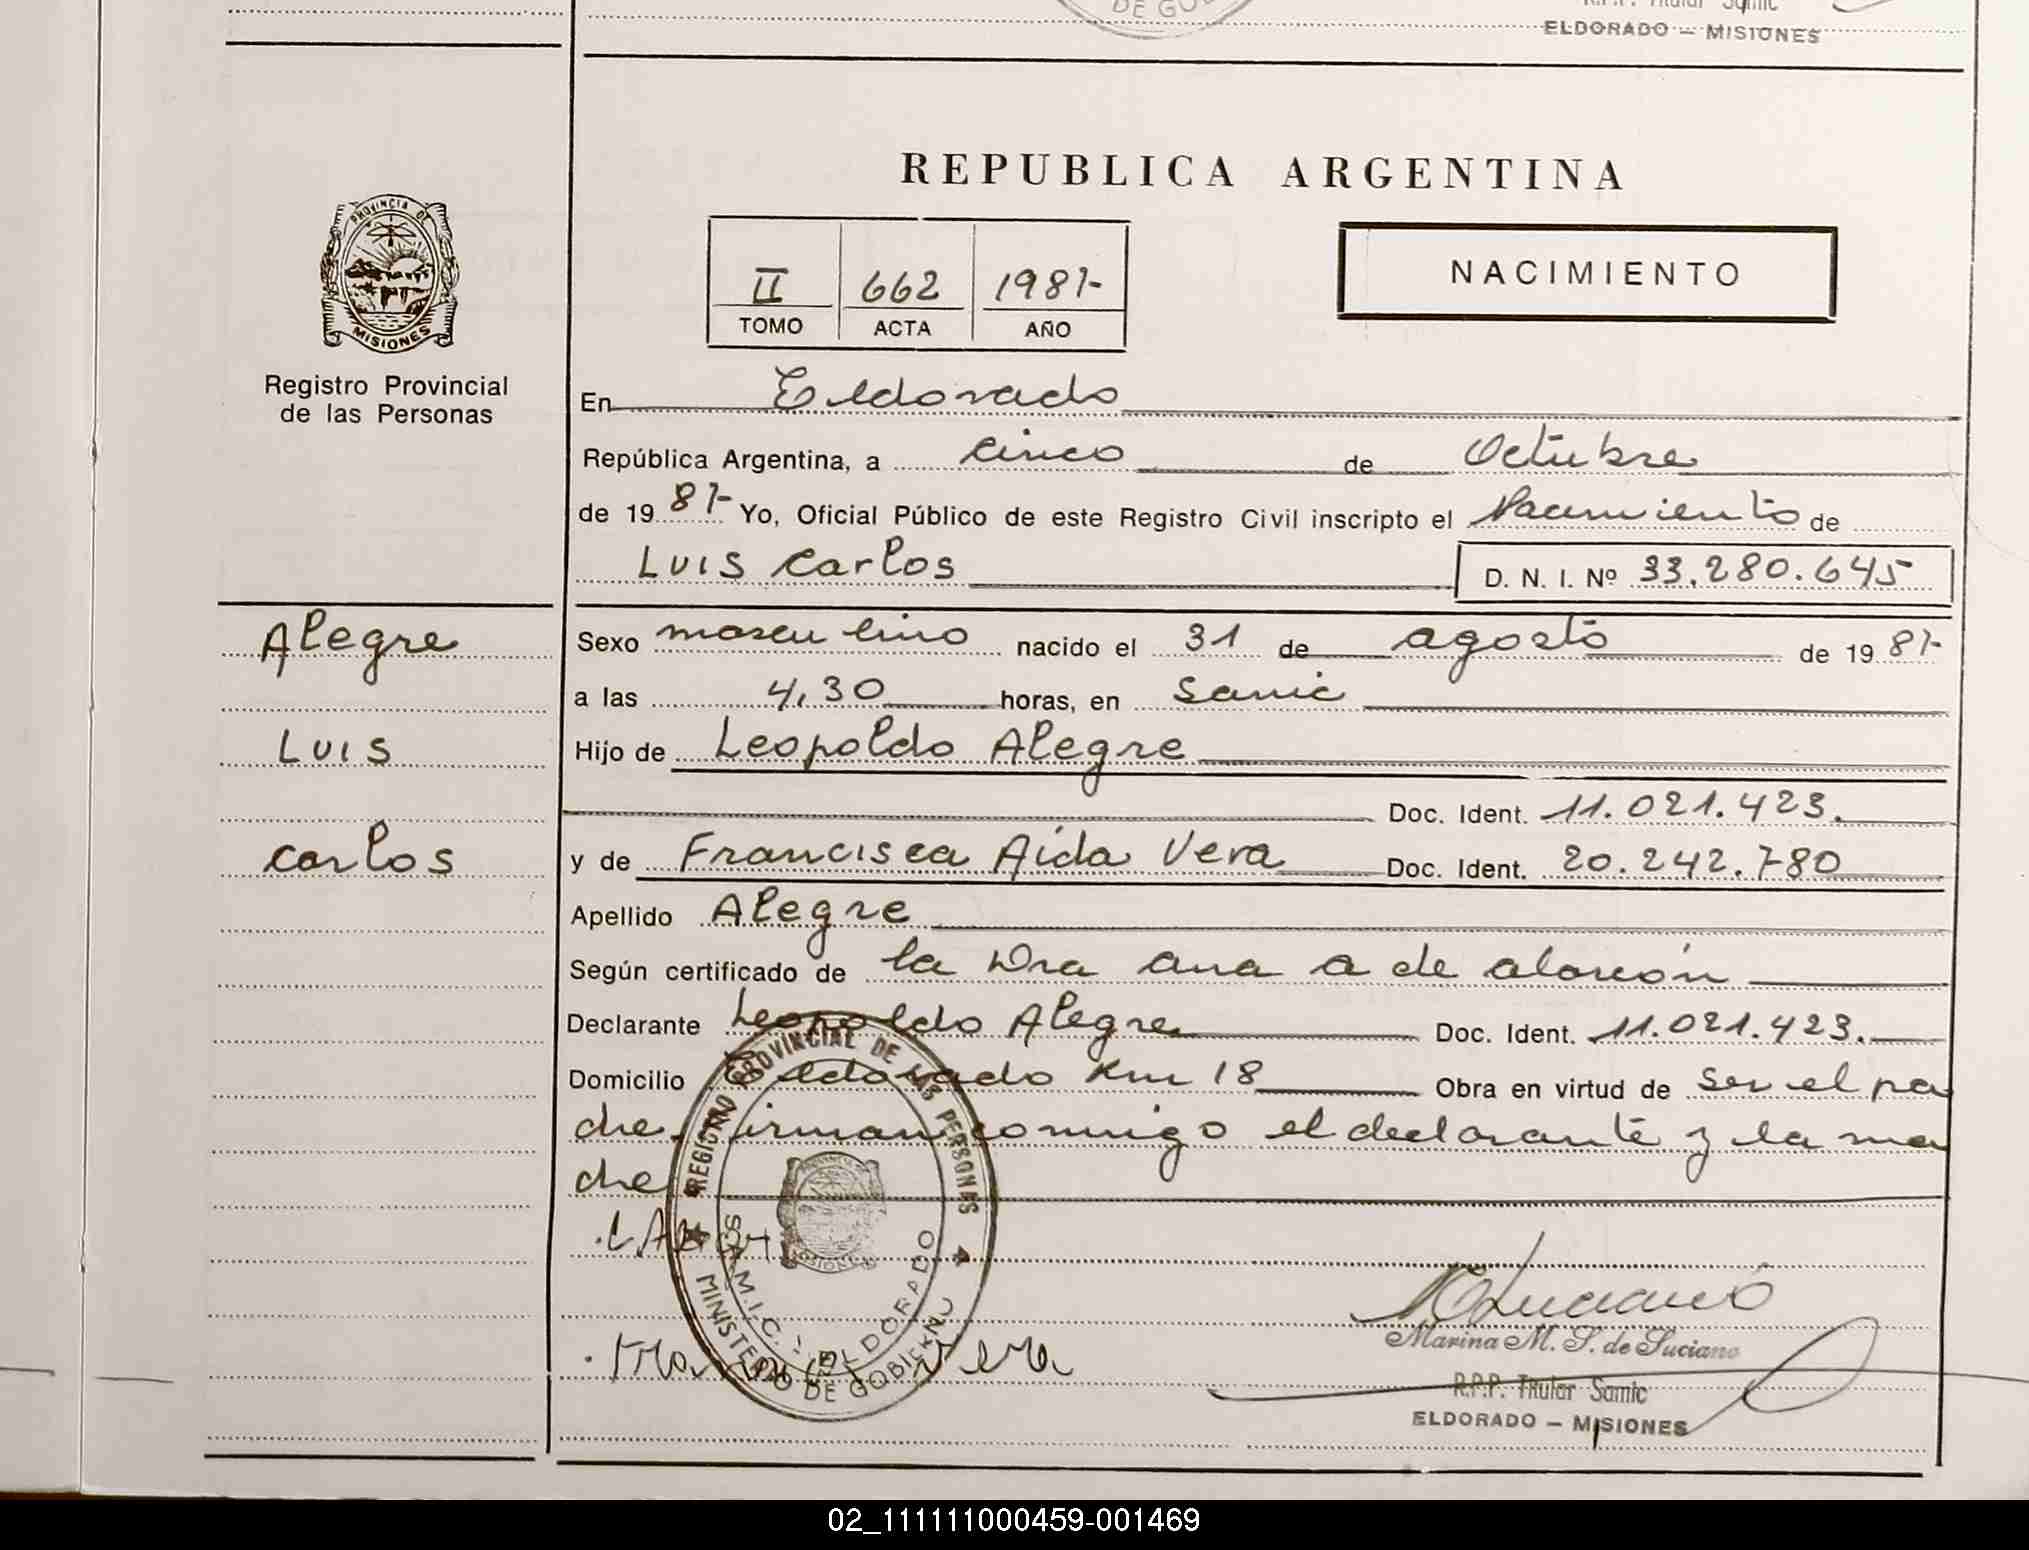 DE GOB
R.P.P. Titular Samic
ELDORADO — MISIONES
REPUBLICA ARGENTINA
PROVINCIA DE
MISIONES
Registro Provincial
de las Personas
II 662 1987-
TOMO ACTA AÑO
NACIMIENTO
En Eldorado
República Argentina, a cinco de Octubre
de 1987- Yo, Oficial Público de este Registro Civil inscripto el Nacimiento de
Luis Carlos D. N. I. Nº 33.280.645
Alegre
Luis
Carlos
Sexo masculino nacido el 31 de agosto de 1987-
a las 4,30 horas, en Samic
Hijo de Leopoldo Alegre
Doc. Ident. 11.021.423.
y de Francisca Aida Vera Doc. Ident. 20.242.780
Apellido Alegre
Según certificado de la Dra Ana A de Alarcón
Declarante Leopoldo Alegre Doc. Ident. 11.021.423.
Domicilio Eldorado Km 18 Obra en virtud de ser el pa
dre. Firman conmigo el declarante y la ma
dre
REGISTRO PROVINCIAL DE LAS PERSONAS
MINISTERIO DE GOBIERNO
S.A.M.I.C. - ELDORADO
PROVINCIA DE
MISIONES
Vera
Luciano
Marina M. S. de Luciano
R.P.P. Titular Samic
ELDORADO — MISIONES
02_111111000459-001469